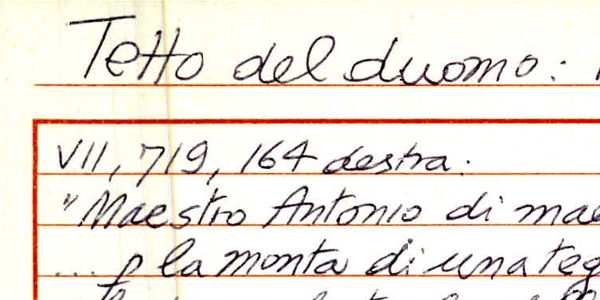 Tetto del duomo:
VII, 719, 164 destra:
"Maestro Antonio di mae
... p la monta di una teg